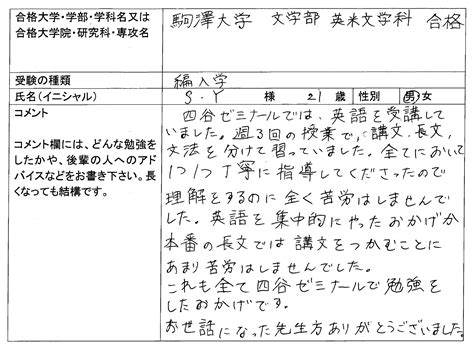 合格大学・学部・学科名又は
合格大学院・研究科・専攻名
駒澤大学 文学部 英米文学科 合格
受験の種類
編入学
氏名(イニシャル)
S・Y 様 21 歳 性別 男・女
コメント
コメント欄には、どんな勉強を
したかや、後輩の人へのアド
バイスなどをお書き下さい。長
くなっても結構です。
四谷ゼミナールでは、英語を受講し
ていました。週3回の授業で、講文、長文、
文法を分けて習っていました。全てにおいて
1つ1つ丁寧に指導してくださったので
理解をするのに全く苦労はしませんで
した。英語を集中的にやったおかげか
本番の長文では講文をつかむことに
あまり苦労はしませんでした。
これも全て四谷ゼミナールで勉強を
したおかげです。
お世話になった先生方ありがとうございました。